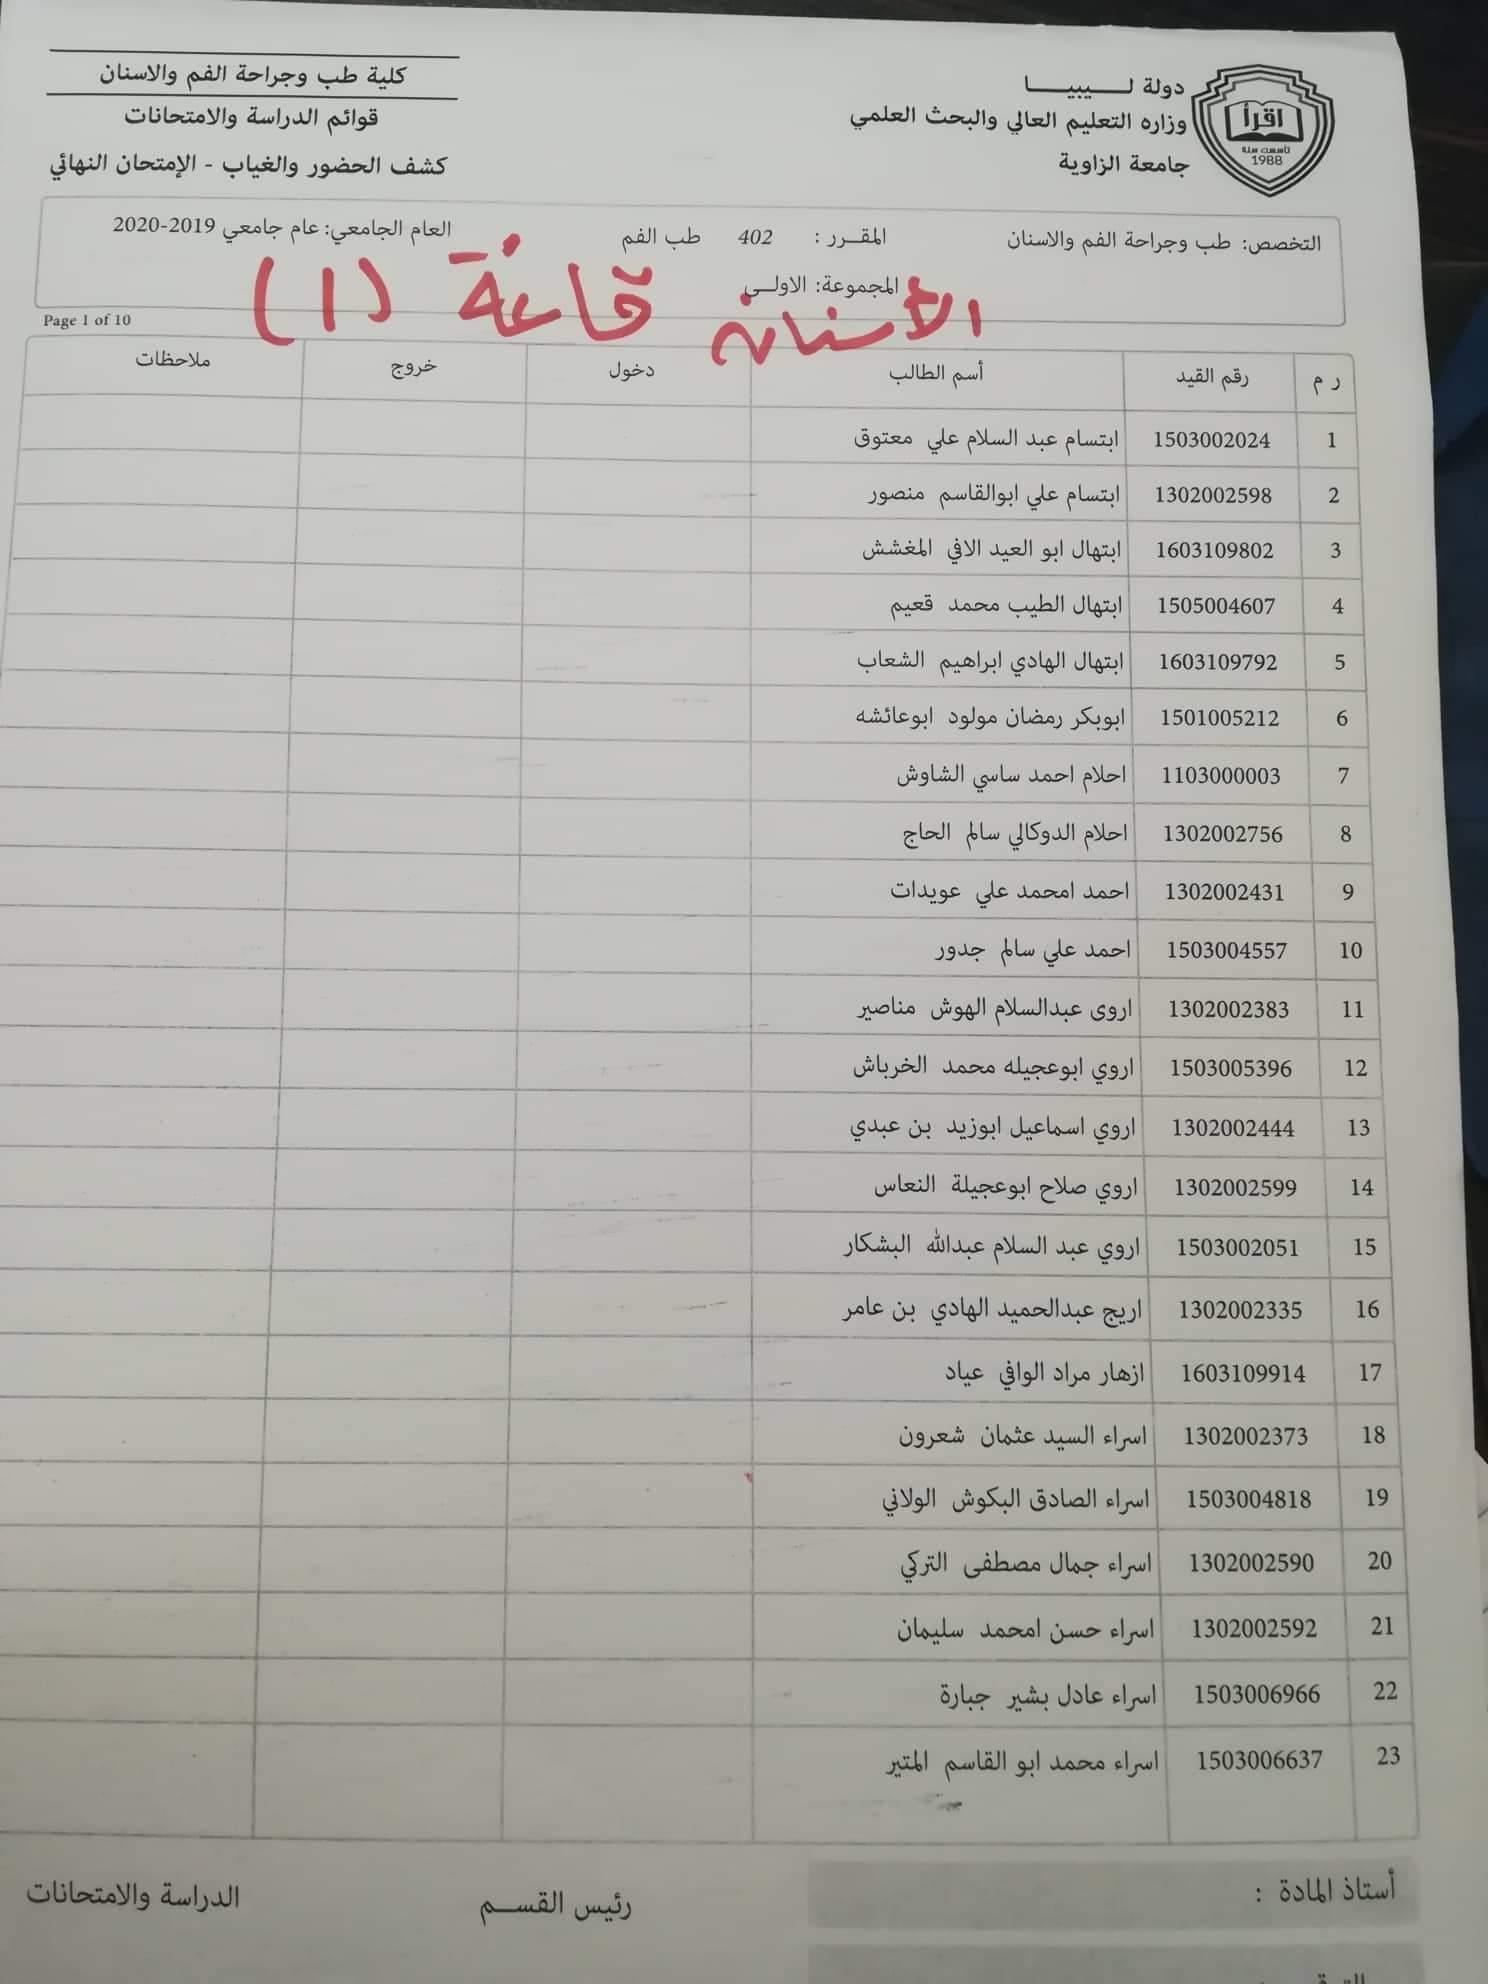 دولة لـــــيبيـــــا
وزاره التعليم العالي والبحث العلمي
جامعة الزاوية
اقرأ
تأسست سنة
1988
كلية طب وجراحة الفم والاسنان
قوائم الدراسة والامتحانات
كشف الحضور والغياب - الإمتحان النهائي
التخصص: طب وجراحة الفم والاسنان المقـــرر : 402 طب الفم العام الجامعي: عام جامعي 2019-2020
المجموعة: الاولــى
الأسنان قاعة (1)
Page 1 of 10
ر م رقم القيد أسم الطالب دخول خروج ملاحظات
1 1503002024 ابتسام عبد السلام علي معتوق
2 1302002598 ابتسام علي ابوالقاسم منصور
3 1603109802 ابتهال ابو العيد الافي المغشش
4 1505004607 ابتهال الطيب محمد قعيم
5 1603109792 ابتهال الهادي ابراهيم الشعاب
6 1501005212 ابوبكر رمضان مولود ابوعائشه
7 1103000003 احلام احمد ساسي الشاوش
8 1302002756 احلام الدوكالي سالم الحاج
9 1302002431 احمد امحمد علي عويدات
10 1503004557 احمد علي سالم جدور
11 1302002383 اروى عبدالسلام الهوش مناصير
12 1503005396 اروي ابوعجيله محمد الخرباش
13 1302002444 اروي اسماعيل ابوزيد بن عبدي
14 1302002599 اروي صلاح ابوعجيلة النعاس
15 1503002051 اروي عبد السلام عبدالله البشكار
16 1302002335 اريج عبدالحميد الهادي بن عامر
17 1603109914 ازهار مراد الوافي عياد
18 1302002373 اسراء السيد عثمان شعرون
19 1503004818 اسراء الصادق البكوش الولاني
20 1302002590 اسراء جمال مصطفى التركي
21 1302002592 اسراء حسن امحمد سليمان
22 1503006966 اسراء عادل بشير جبارة
23 1503006637 اسراء محمد ابو القاسم المتير
أستاذ المادة : رئيس القســـم الدراسة والامتحانات